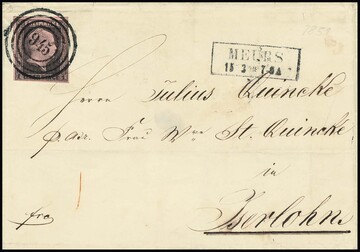 945
MEURS
15 3
Herrn Julius Quincke
p. Adr. Frau Wwe St. Quincke
in
Iserlohn
fco